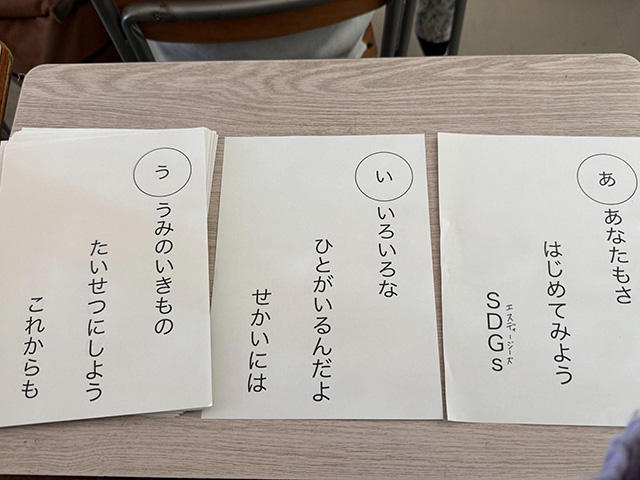 あ
あなたもさ
はじめてみよう
SDGs
エスディージーズ
い
いろいろな
ひとがいるんだよ
せかいには
う
うみのいきもの
たいせつにしよう
これからも